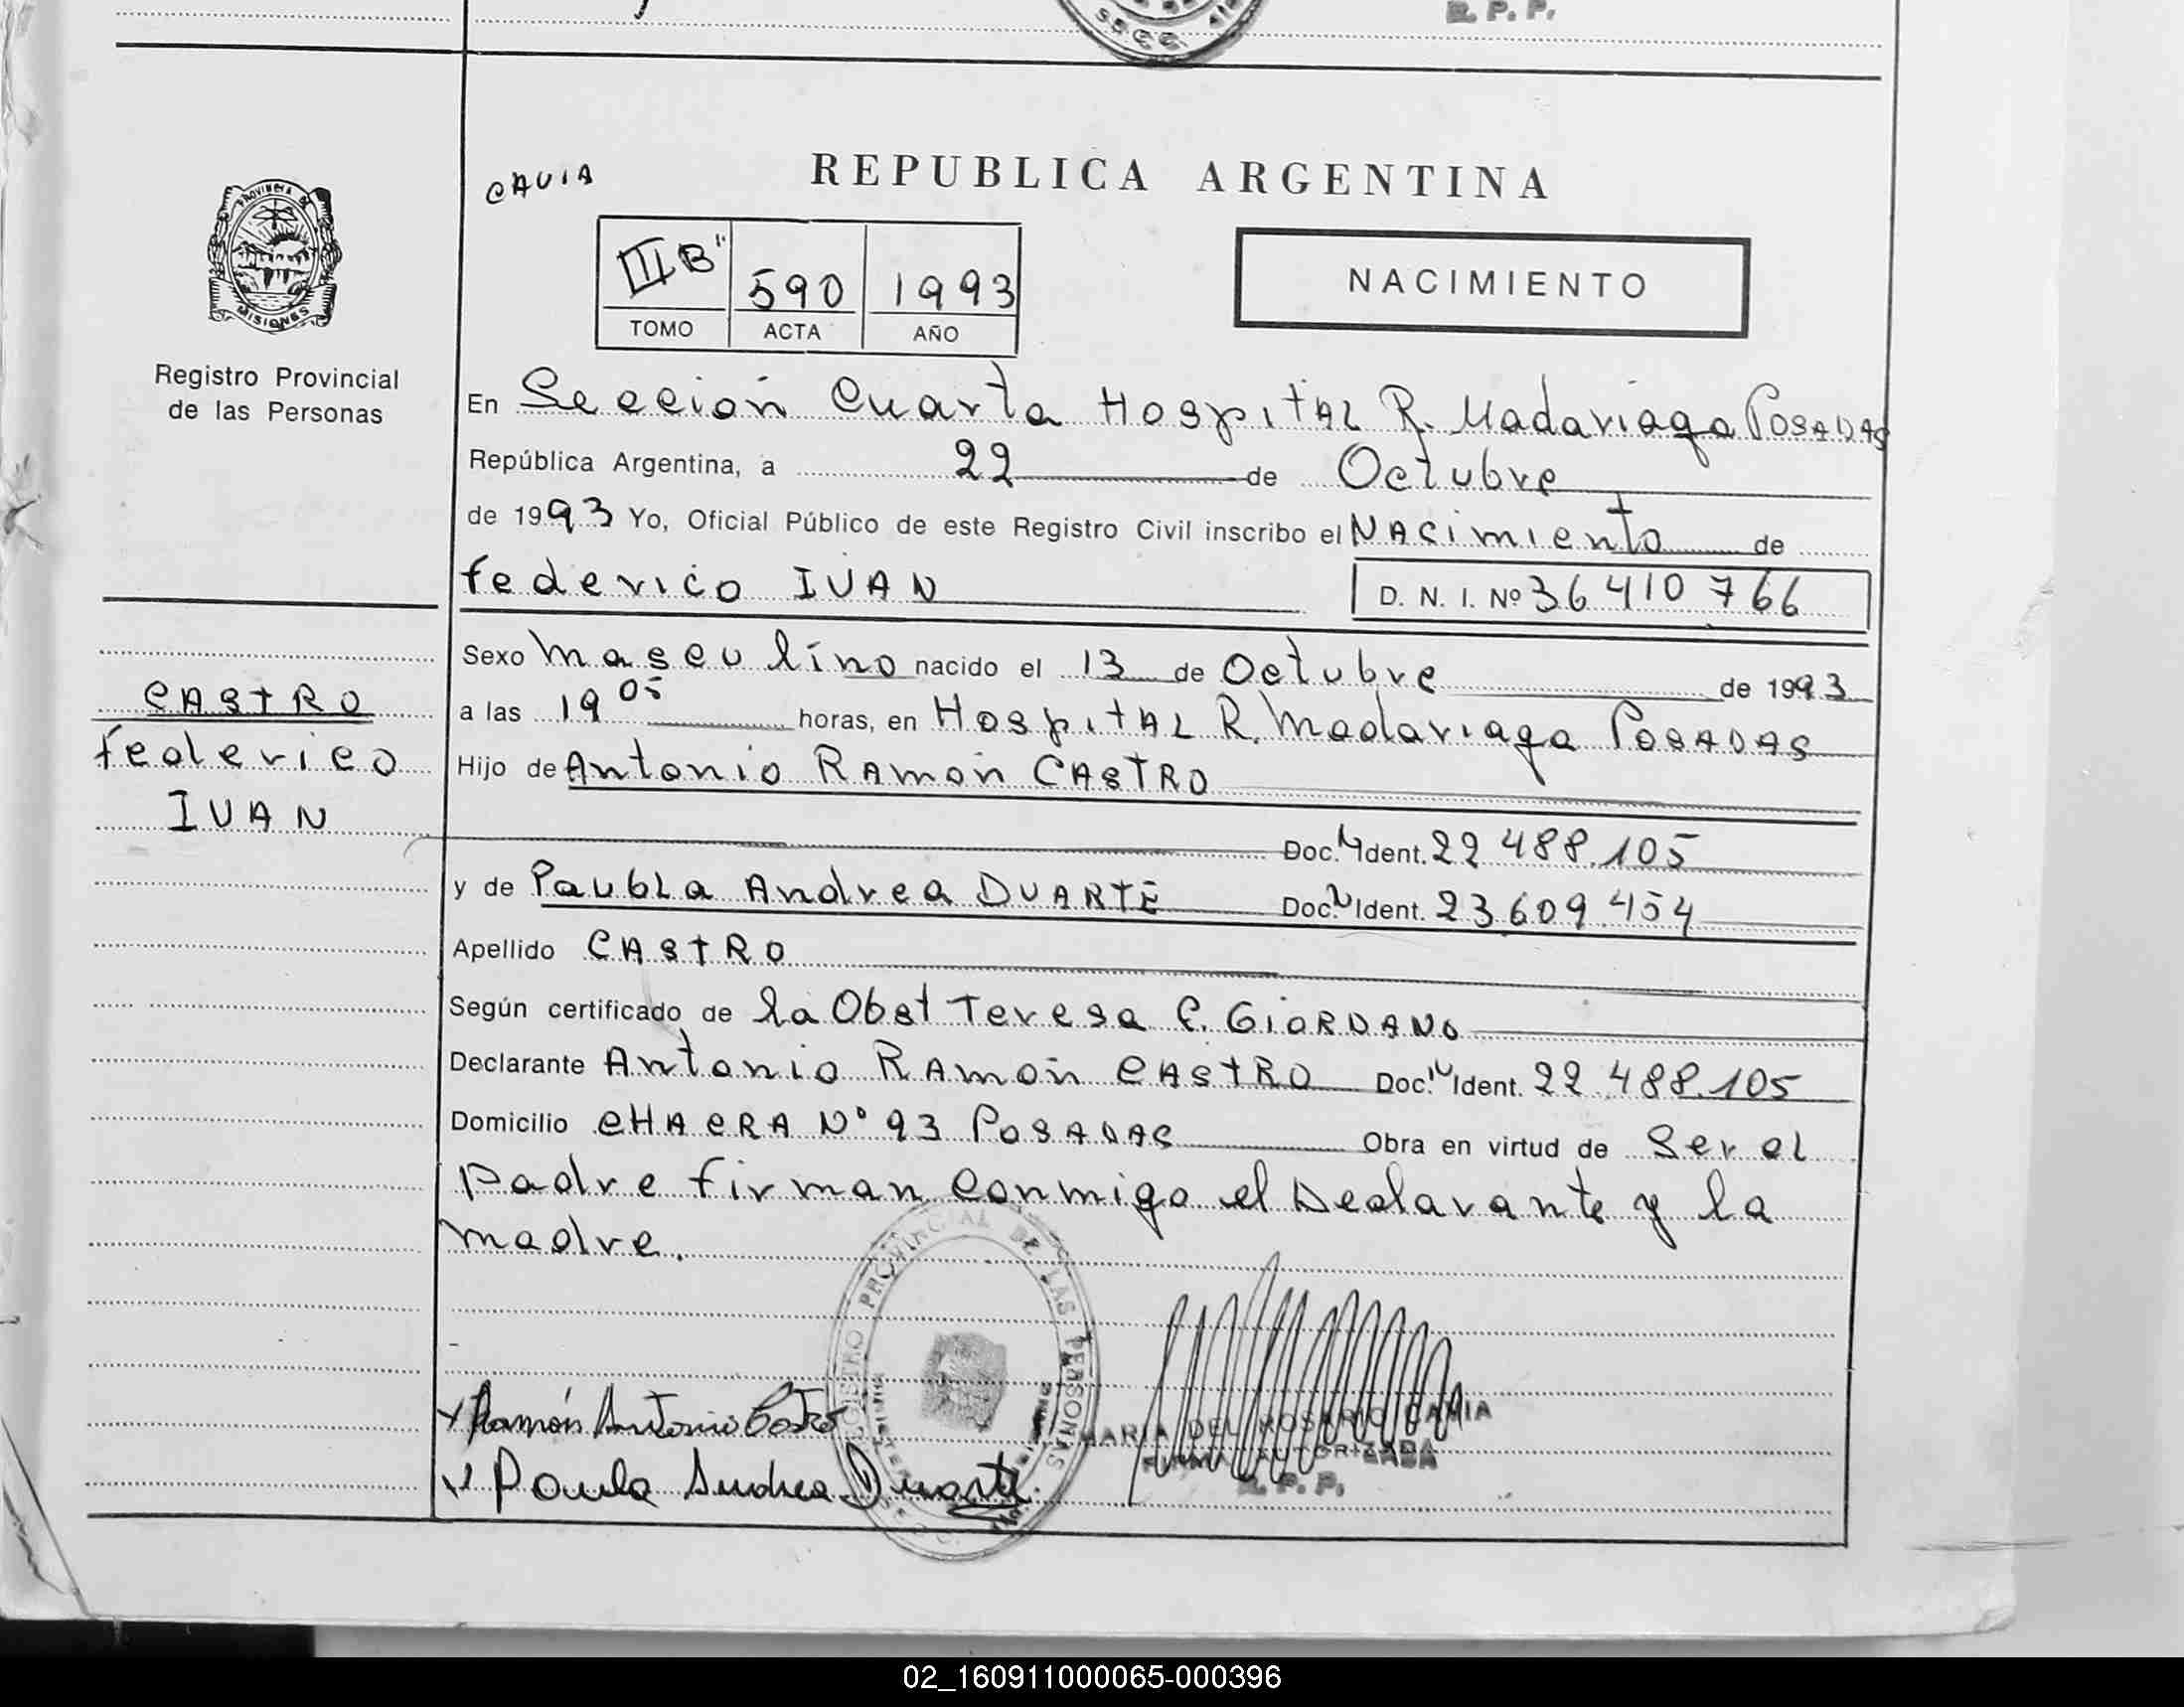 R. P. P.
CAVIA
REPUBLICA ARGENTINA
PROVINCIA DE
MISIONES
Registro Provincial
de las Personas
III B"
590
1993
TOMO
ACTA
AÑO
NACIMIENTO
En Sección Cuarta Hospital R. Madariaga Posadas
República Argentina, a 22 de Octubre
de 1993 Yo, Oficial Público de este Registro Civil inscribo el Nacimiento de
Federico IVAN
D. N. I. Nº 36 410 766
Sexo Masculino nacido el 13 de Octubre de 1993
a las 19 05 horas, en Hospital R. Madariaga Posadas
Hijo de Antonio Ramón CASTRO
Doc. Ident. 22 488.105
y de Paubla Andrea DUARTE Doc. Ident. 23 609 454
Apellido CASTRO
Según certificado de la Obst Teresa C. GIORDANO
Declarante Antonio Ramón CASTRO Doc. Ident. 22 488.105
Domicilio CHACRA Nº 93 Posadas Obra en virtud de Ser el
padre firman conmigo el Declarante y la
madre.
CASTRO
Federico
IVAN
REGISTRO PROVINCIAL DE LAS PERSONAS
Ramón Antonio Castro
Paula Andrea Duarte
MARIA DEL ROSARIO CAVIA
FIRMA AUTORIZADA
R. P. P.
02_160911000065-000396